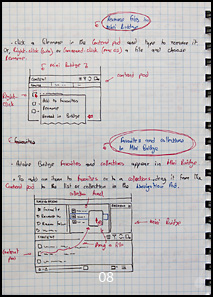 Rename files in
Mini Bridge
- click a filename in the Content pod and type to rename it.
Or, Right-click (win) or Command-click (mac os) a file and choose
Rename.
mini bridge 2
content pod
CONTENT
Right-
click
Add to favorites
Rename
Reveal in Bridge
Favorites
Favorites and collections
in Mini Bridge
- Adobe Bridge favorites and collections appear in Mini Bridge.
- To add an item to favorites or to a collection, drag it from the
Content pod to the list or collection in the Navigation Pod.
mini Bridge
CONTENT
Content
pod
drag a file
08